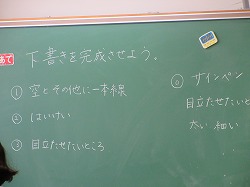 めあて
下書きを完成させよう。
① 空とその他に一本線
② はいけい
③ 目立たせたいところ
◎ サインペン
目立たせたいと
太い 細い